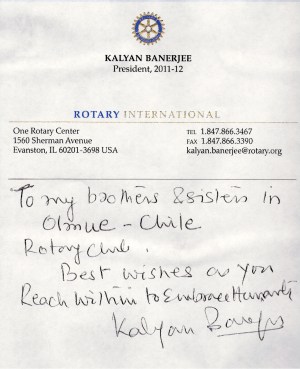 KALYAN BANERJEE
President, 2011-12
ROTARY INTERNATIONAL
One Rotary Center
1560 Sherman Avenue
Evanston, IL 60201-3698 USA
TEL 1.847.866.3467
FAX 1.847.866.3390
kalyan.banerjee@rotary.org
To my brothers & sisters in
Olmue - Chile
Rotary Club.
Best wishes as you
Reach Within to Embrace Humanity
Kalyan Banerjee